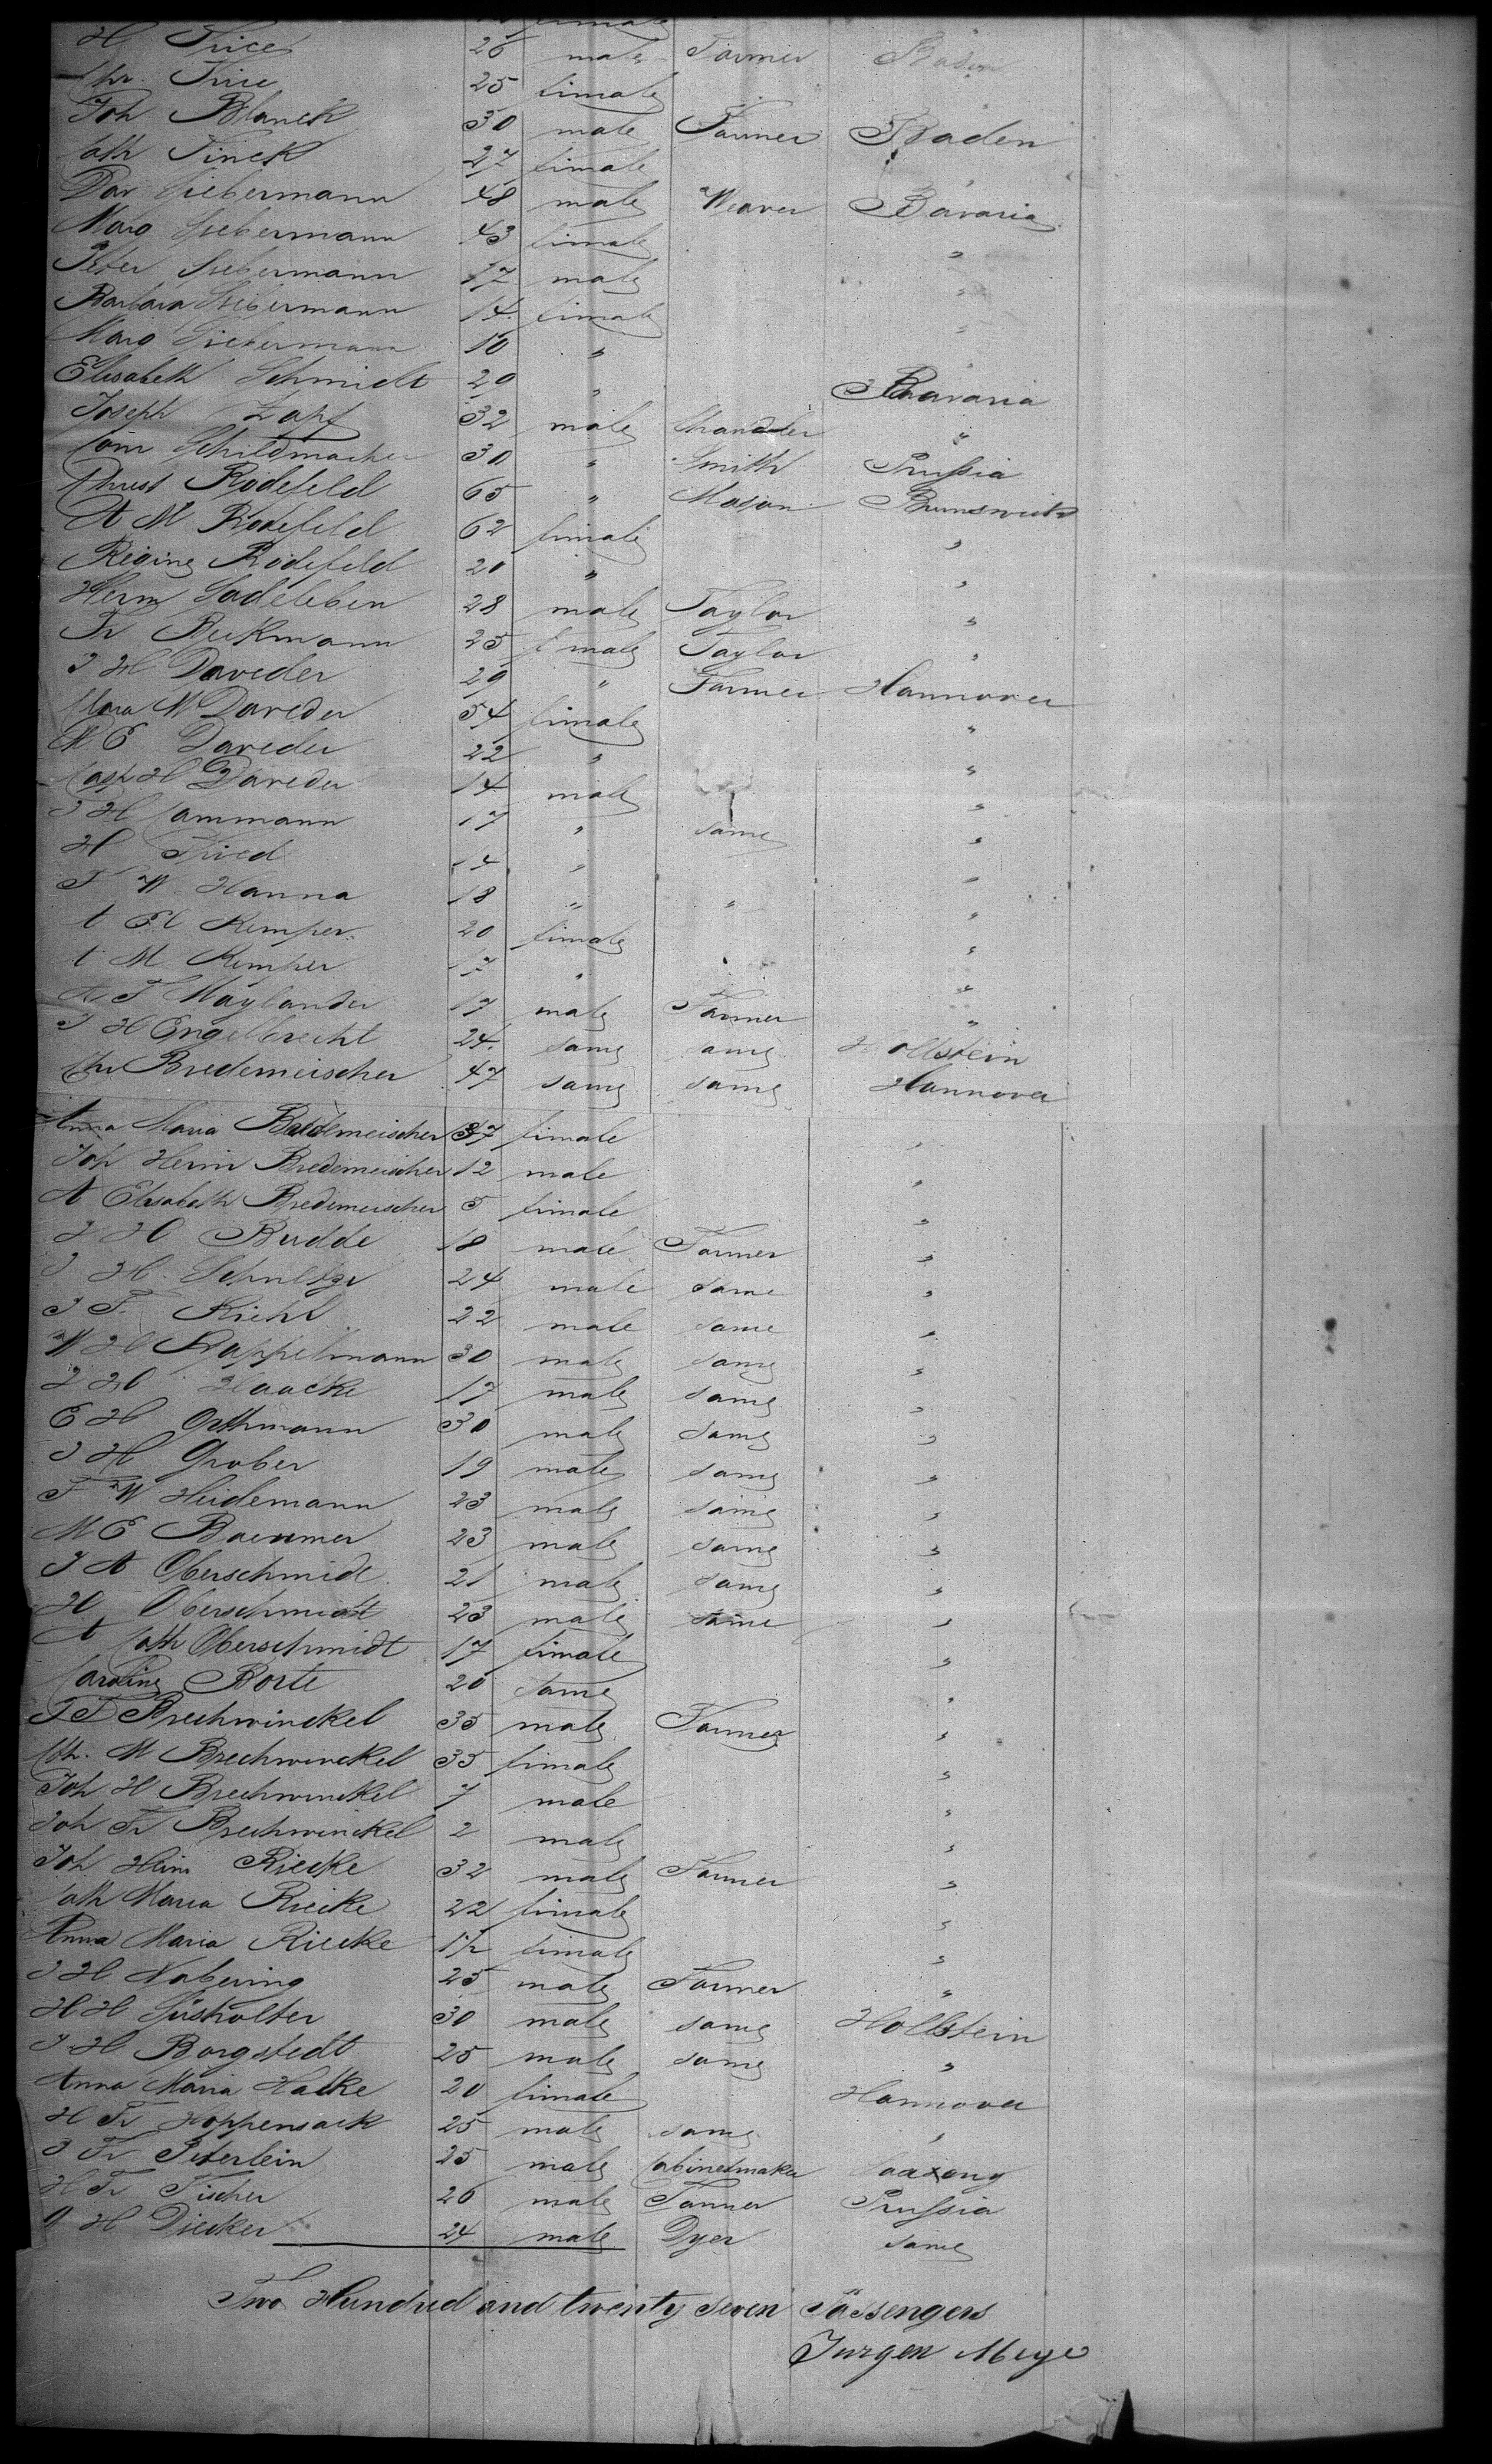 female
H Trice 26 male Farmer Baden
Chr. Trice 25 female "
Joh Blanck 30 male Farmer Baden
Cath Finck 27 female "
Dav Siebermann 48 male Weaver Bavaria
Marg Siebermann 43 female "
Peter Siebermann 17 male "
Barbara Siebermann 14 female "
Marg Siebermann 10 " "
Elisabeth Schmidt 20 " Bavaria
Joseph Zapf 32 male Chandler "
Conr Schildmacher 30 " Smith Prussia
Christ Rodefeld 65 " Mason Brunswick
A M Rodefeld 62 female "
Regine Rodefeld 20 " "
Herm Sadeleben 28 male Taylor "
Fr Beckmann 25 female Taylor "
J H Daveder 29 " Farmer Hannover
Clara M Daveder 54 female "
M E Daveder 22 " "
Casp H Daveder 14 male "
J H Cammann 17 " same "
H Fried 14 " "
F W Hanna 18 " " "
C El Kemper 20 female "
C M Kemper 17 " "
A F Maylander 17 male Farmer "
J H Engelbrecht 24 same same Hollstein
Chr Bredemeischer 47 same same Hannover
Anna Maria Bredemeischer 37 female "
Joh Herm Bredemeischer 12 male "
A Elisabeth Bredemeischer 5 female "
J H Budde 18 male Farmer "
J H Schultze 24 male same "
J F Kiehl 22 male same "
W H Kappelmann 30 male same "
J H Haacke 17 male same "
E H Orthmann 30 male same "
J H Grober 19 male same "
F W Heidemann 23 male same "
M E Baeumer 23 male same "
J A Oberschmidt 21 male same "
H Oberschmidt 23 male same "
A Cath Oberschmidt 17 female "
Caroline Borte 20 same "
J F Brechwinckel 35 male Farmer "
Cth. M Brechwinckel 35 female "
Joh H Brechwinckel 7 male "
Joh Fr Brechwinckel 2 male "
Joh Heinr Riecke 32 male Farmer "
Cath Maria Riecke 22 female "
Anna Maria Riecke 1/2 female "
J H Nabering 25 male Farmer "
H H Susholter 30 male same Hollstein
J H Borgstedt 25 male same "
Anna Maria Halke 20 female Hannover
H Fr Hoppensack 25 male same "
J Fr Peterlein 25 male Cabinetmaker Saaxong
H Fr Fischer 26 male Tanner Prussia
G H Diecker 24 male Dyer same
Two Hundred and twenty seven Passengers
Jurgen Meye